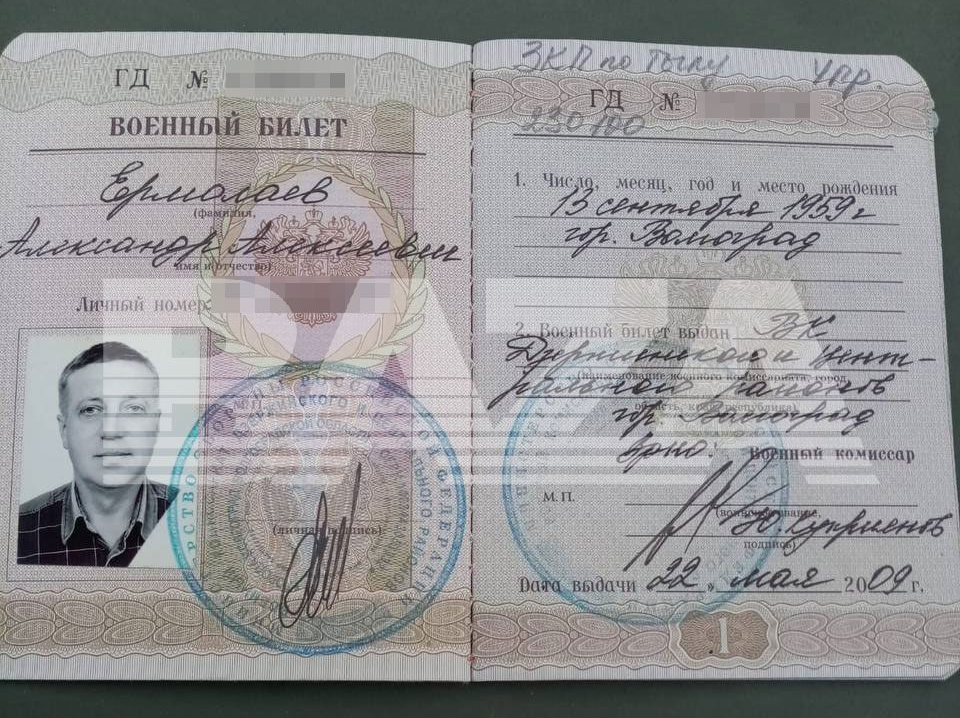 ГД №
ВОЕННЫЙ БИЛЕТ
Ермолаев
(фамилия,
Александр Алексеевич
имя и отчество)
Личный номер
(личная подпись)
ЗКП по тылу Упр.
ГД №
230100
1. Число, месяц, год и место рождения
13 сентября 1959г
гор. Волгоград
2. Военный билет выдан ВК
Дзержинского и Цент-
(наименование военного комиссариата, города,
рального районов
область, край, республика)
гор. Волгоград
Врио: Военный комиссар
М. П.
(воинское звание,
Н. Куприенов
подпись)
Дата выдачи 22 „ мая 2009 г.
1
BAZA